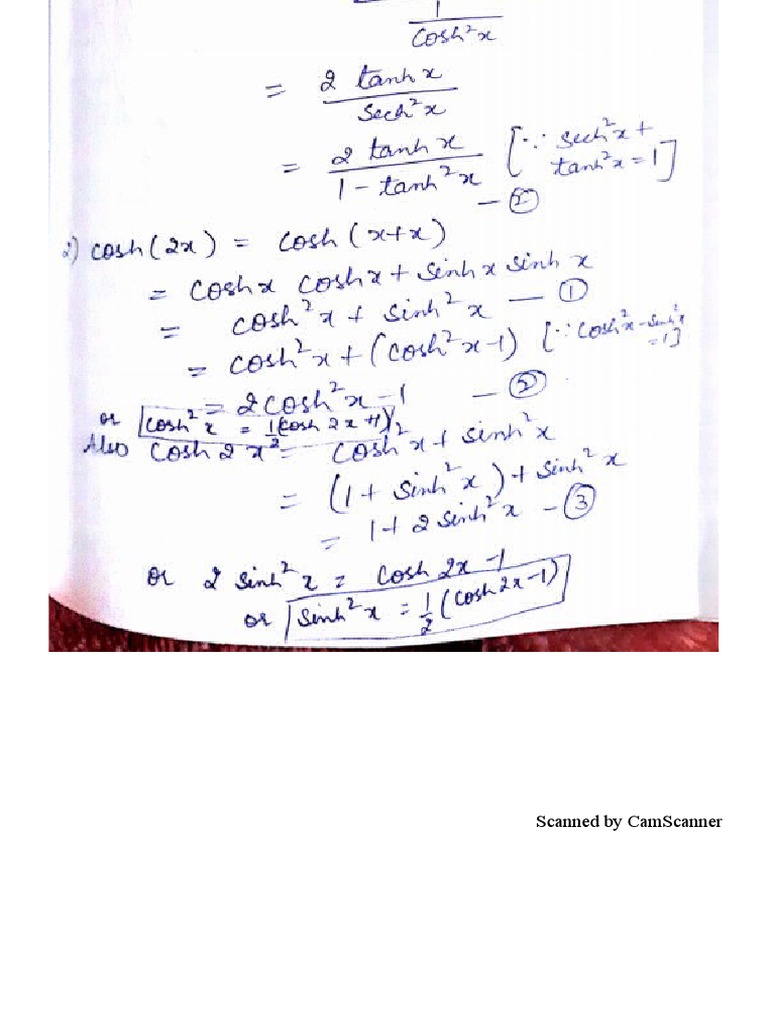 1
cosh²x
= 2 tanh x
sech²x
= 2 tanh x [∵ sech²x +
1 - tanh²x tanh²x = 1]
— ②
2) cosh(2x) = cosh(x+x)
= cosh x cosh x + sinh x sinh x
= cosh²x + sinh²x — ①
= cosh²x + (cosh²x-1) [∵ cosh²x - sinh²x
= 1]
= 2cosh²x - 1 — ②
or cosh²x = 1/2(cosh 2x +1)
Also cosh 2x = cosh²x + sinh²x
= (1 + sinh²x) + sinh²x
= 1 + 2 sinh²x — ③
or 2 sinh²x = cosh 2x - 1
or sinh²x = 1/2 (cosh 2x - 1)
Scanned by CamScanner